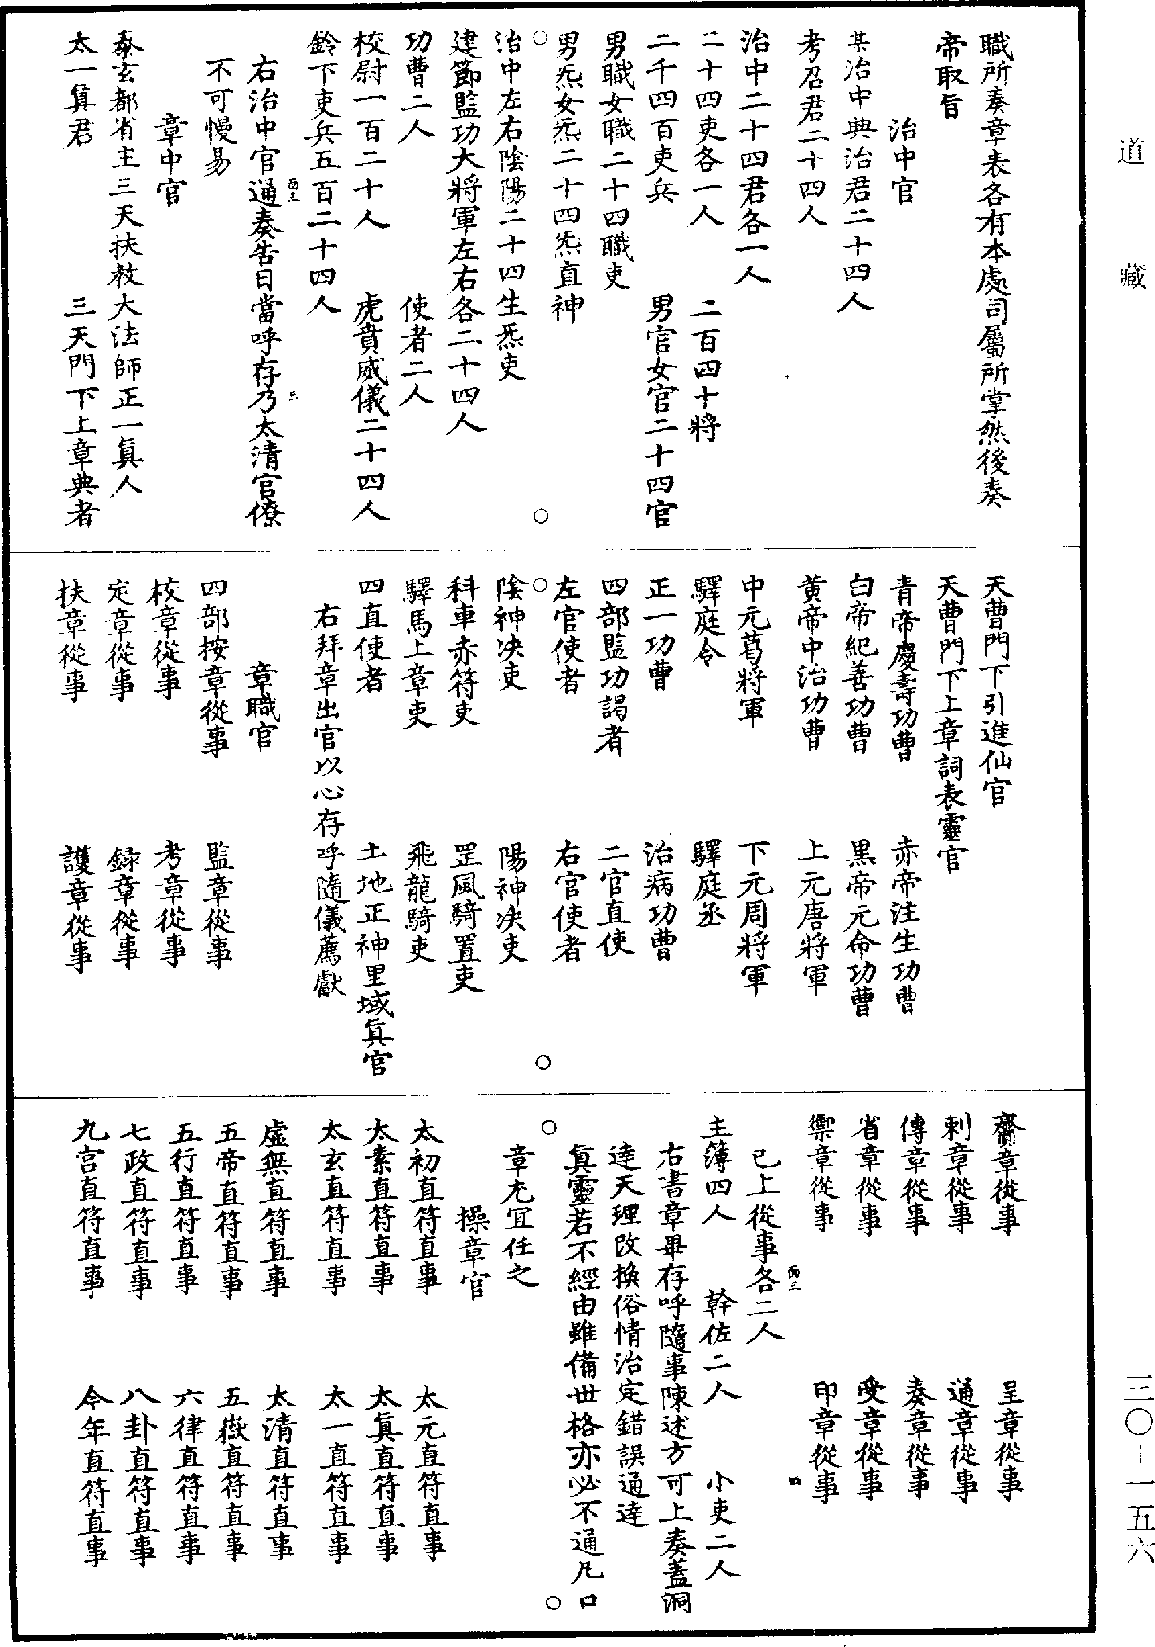 道藏
職所奏章表各有本處司屬所掌然後奏
帝取旨
治中官
某治中典治君二十四人
考召君二十四人
治中二十四君各一人
二十四吏各一人 二百四十將
二千四百吏兵 男官女官二十四官
男職女職二十四職吏
男炁女炁二十四炁直神
○ ○
治中左右陰陽二十四生炁吏
建節監功大將軍左右各二十四人
功曹二人 使者二人
校尉一百二十人 虎賁威儀二十四人
鈴下吏兵五百二十四人
右治中官通奏告曰當呼存乃太清官僚
不可慢易
章中官
泰玄都省主三天扶教大法師正一真人
太一真君 三天門下上章典者
天曹門下引進仙官
天曹門下上章詞表靈官
青帝慶壽功曹 赤帝注生功曹
白帝紀善功曹 黑帝元命功曹
黃帝中治功曹 上元唐將軍
中元葛將軍 下元周將軍
驛庭令 驛庭丞
正一功曹 治病功曹
四部監功謁者 二官直使
左官使者 右官使者
○ ○
陰神決吏 陽神決吏
科車赤符吏 罡風騎置吏
驛馬上章吏 飛龍騎吏
四直使者 土地正神里域真官
右拜章出官以心存呼隨儀薦獻
章職官
四部按章從事 監章從事
校章從事 考章從事
定章從事 錄章從事
扶章從事 護章從事
齋章從事 呈章從事
刺章從事 通章從事
傳章從事 奏章從事
省章從事 受章從事
禦章從事 印章從事
已上從事各二人
主簿四人 幹佐二人 小吏二人
右書章畢存呼隨事陳述方可上奏蓋洞
達天理改換俗情治定錯誤通達
真靈若不經由雖備世格亦必不通凡口
○ ○
章尤宜任之
操章官
太初直符直事 太元直符直事
太素直符直事 太真直符直事
太玄直符直事 太一直符直事
虛無直符直事 太清直符直事
五帝直符直事 五嶽直符直事
五行直符直事 六律直符直事
七政直符直事 八卦直符直事
九宮直符直事 今年直符直事
三〇－一五六